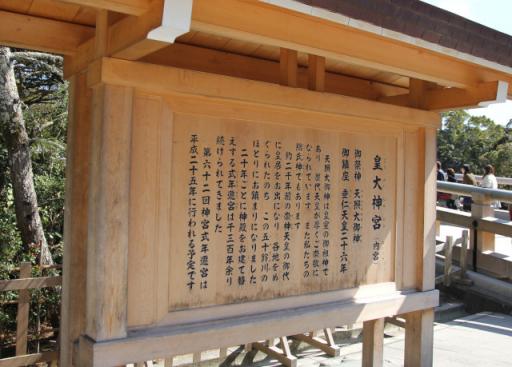 皇大神宮（内宮）
御祭神 天照大御神
御鎮座 垂仁天皇二十六年
天照大御神は皇室の御祖神で
あり 歴代天皇が厚くご崇敬に
なられています また私たちの
総氏神でもあります
約二千年前の崇神天皇の御代
に皇居をお出になり 各地をめ
ぐられたのち この五十鈴川の
ほとりにお鎮まりになりました
二十年ごとに神殿をお建て替
えする式年遷宮は千三百年余り
続けられてきました
第六十二回神宮式年遷宮は
平成二十五年に行われる予定です